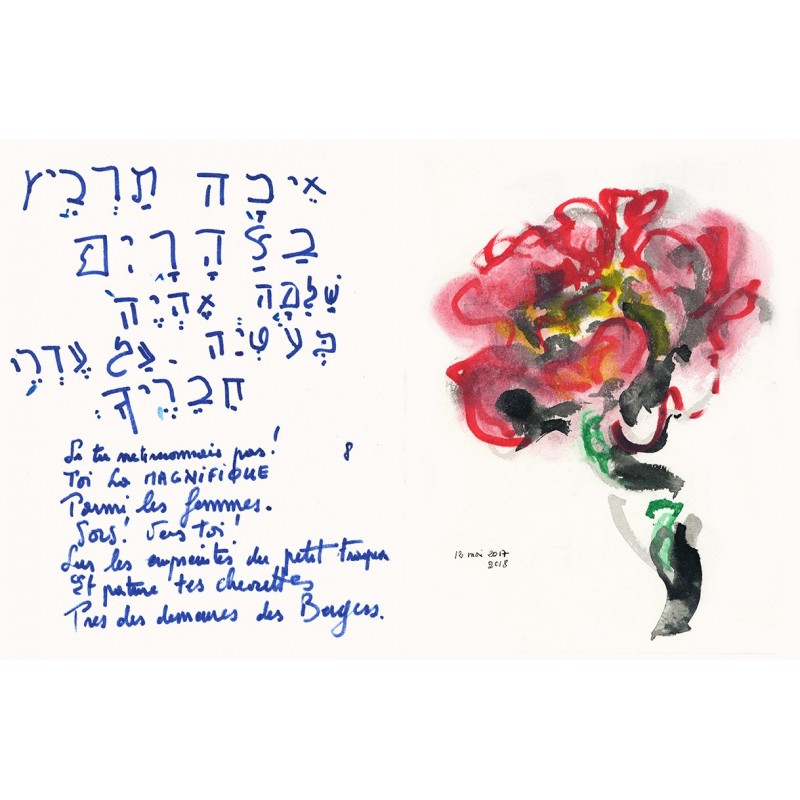 אֵיכָה תַרְבֵּיץ
בַּצַּהָרָיִם
שַׁלְמָּה אֶהְיֶה
כְּעֹטְיָה . עַל עֶדְרֵי
חֲבֵרֶיךָ
Si tu pas! 8
Toi La MAGNIFIQUE
Parmi les femmes.
Sors! Vers toi!
Sur les empreintes du petit
Et pature tes chevrettes
Pres des demeures des Bergers.
12 mai 2017
2018